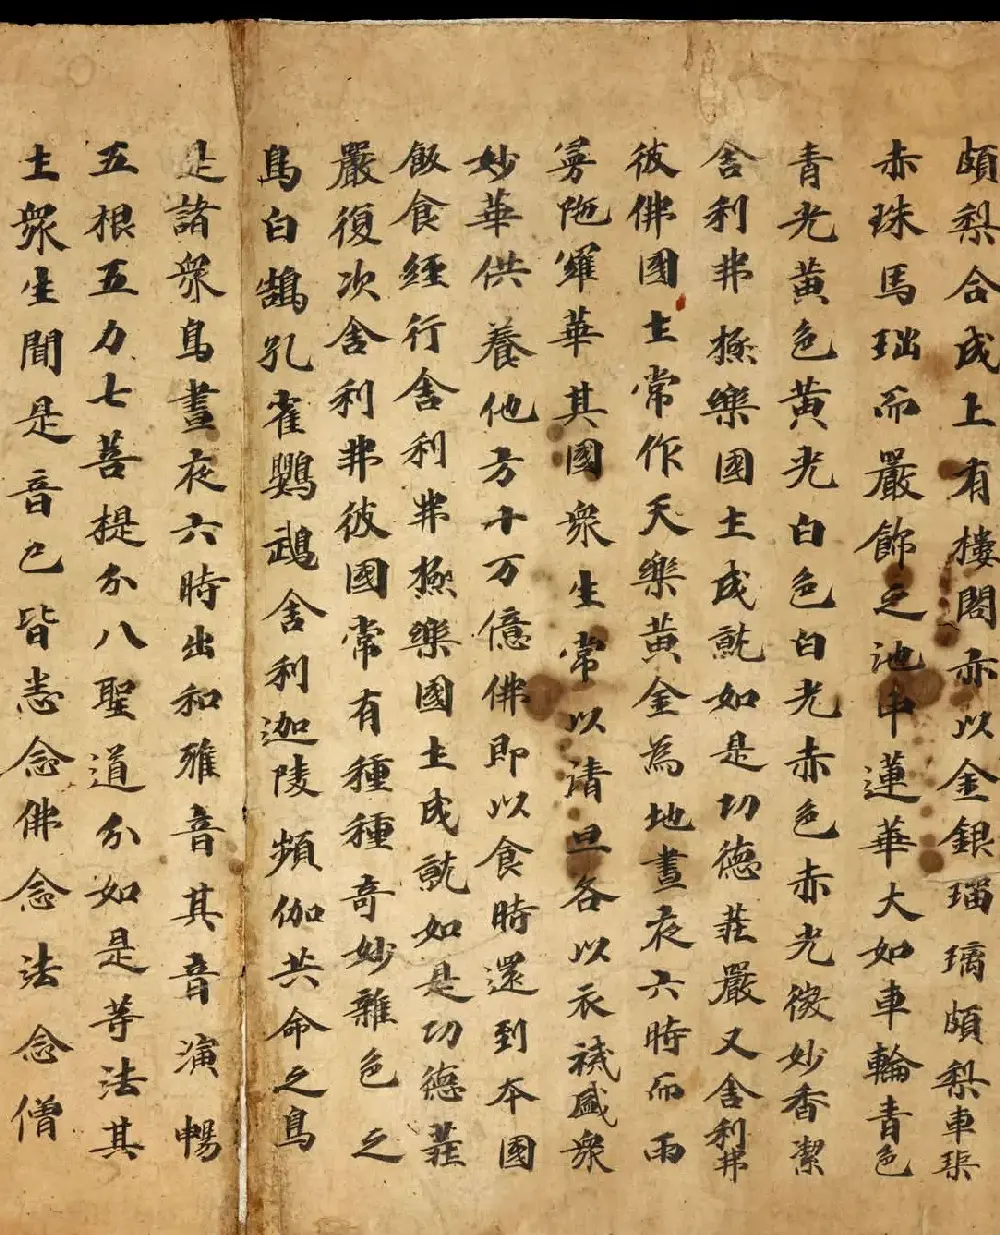 頗梨合成上有樓閣亦以金銀瑠璃頗梨車𤦲
赤珠馬瑙而嚴飾之池中蓮華大如車輪青色
青光黃色黃光白色白光赤色赤光微妙香潔
舍利弗極樂國土成就如是功德莊嚴又舍利弗
彼佛國土常作天樂黃金為地晝夜六時而雨
曼陁羅華其國衆生常以清旦各以衣裓盛衆
妙華供養他方十万億佛即以食時還到本國
飯食經行舍利弗極樂國土成就如是功德莊
嚴復次舍利弗彼國常有種種奇妙雜色之
鳥白鵠孔雀鸚鵡舍利迦陵頻伽共命之鳥
是諸衆鳥晝夜六時出和雅音其音演暢
五根五力七菩提分八聖道分如是等法其
土衆生聞是音已皆悉念佛念法念僧